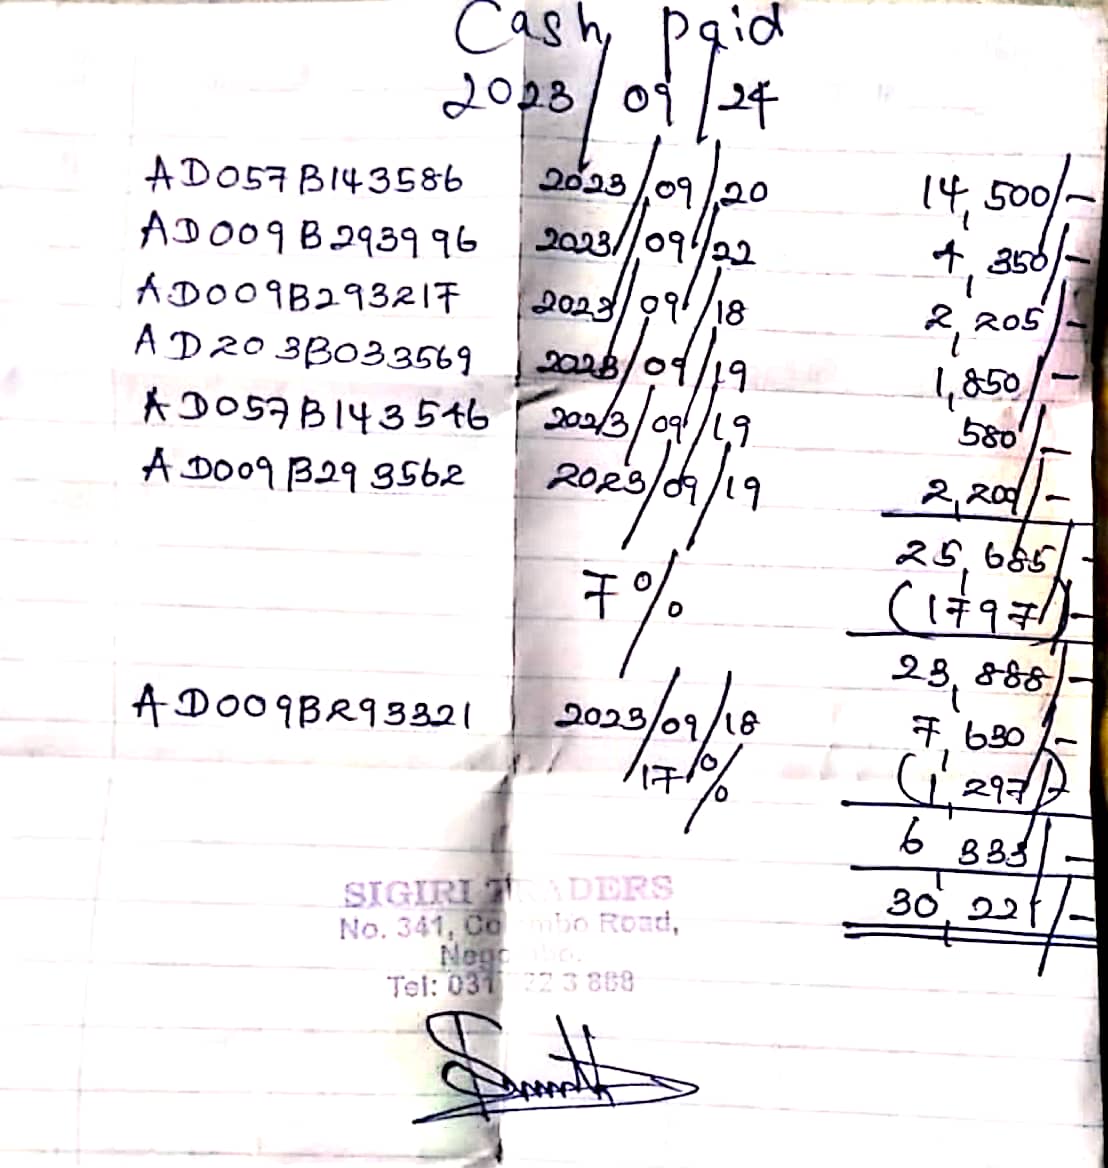 Cash paid
2023/09/24
AD057B143586 2023/09/20 14,500/-
AD009B293996 2023/09/22 4,350/-
AD009B293217 2023/09/18 2,205/-
AD203B033569 2023/09/19 1,850/-
AD057B143546 2023/09/19 580/-
AD009B293562 2023/09/19 2,200/-
25,685/-
7% (1797/-)
23,888/-
AD009B293321 2023/09/18 7,630/-
17% (1,297/-)
6,333/-
30,221/-
SIGIRI TRADERS
No. 341, Colombo Road,
Negombo.
Tel: 031 22 3 888